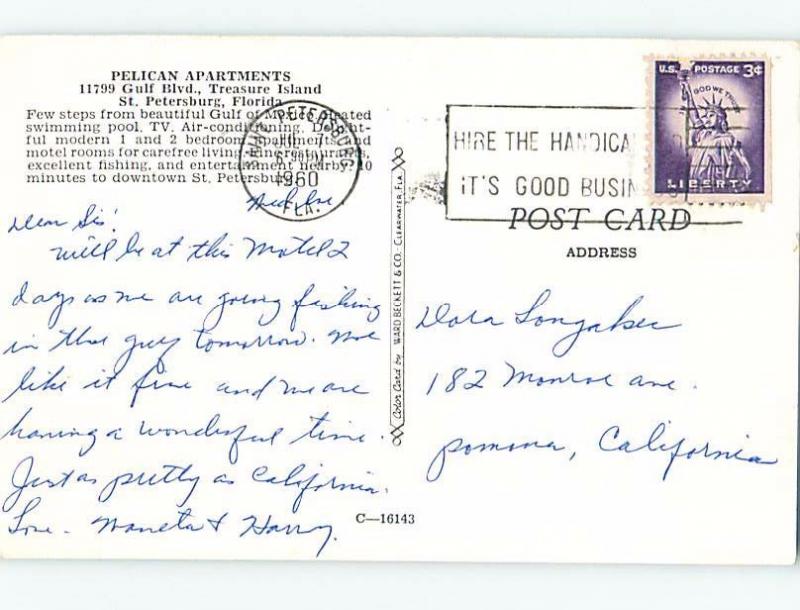 PELICAN APARTMENTS
11799 Gulf Blvd., Treasure Island
St. Petersburg, Florida
Few steps from beautiful Gulf of Mexico, heated
swimming pool, TV, Air-conditioning. Delight-
ful modern 1 and 2 bedroom apartments and
motel rooms for carefree living. Near restaurants,
excellent fishing, and entertainment nearby. 10
minutes to downtown St. Petersburg.
SAINT PETERSBURG
1960
FLA.
HIRE THE HANDICA
IT'S GOOD BUSIN
U.S. POSTAGE 3¢
IN GOD WE TRUST
LIBERTY
POST CARD
ADDRESS
Dear Sis!
will be at this Motel 2
days as we are going fishing
in the gulf tomorrow. We
like it fine and we are
having a wonderful time.
Just as pretty as California.
Love - & Harry.
Color Card by WARD BECKETT & CO. - CLEARWATER, FLA.
Dora Longaker
182 Monroe ave.
Pomona, California
C—16143